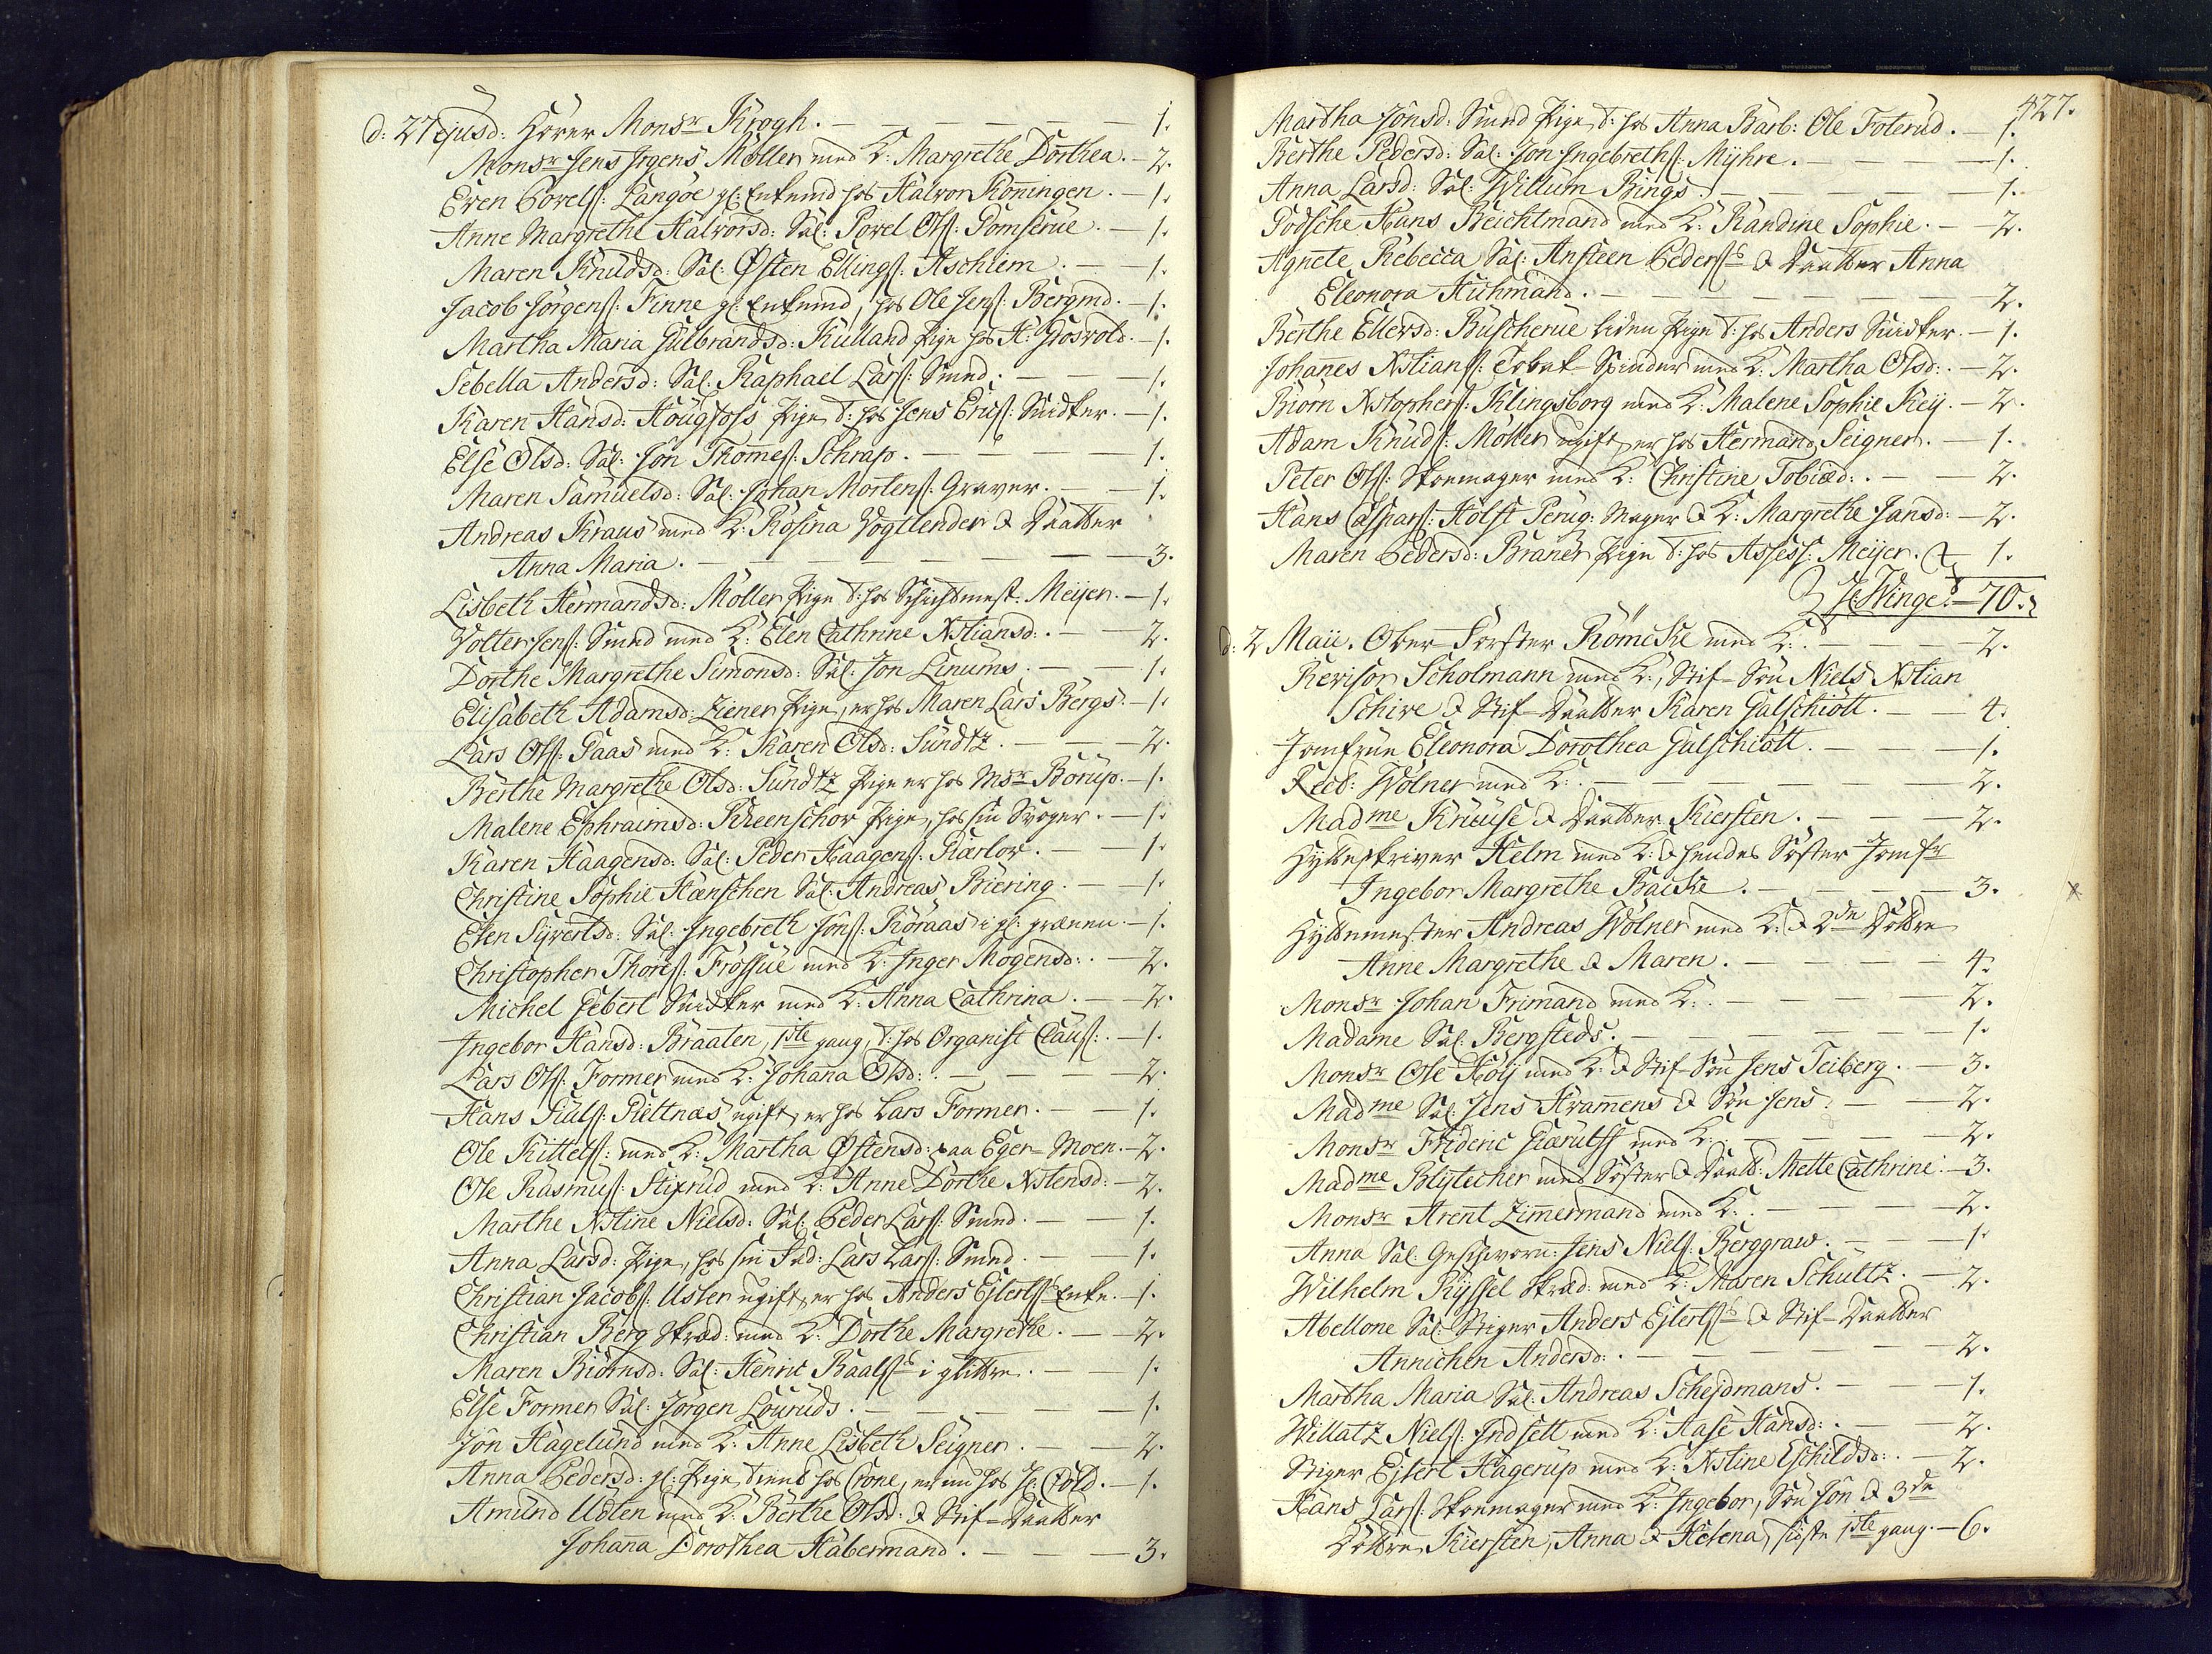 d: 27 ejusd: Hörer Monsr Krogh. — 1.
Monsr Jens Jrgens Möller med K: Margrethe Dorthea. — 2.
Even Povels: Langöe gl: Enkemd hos Halvor Konningen. — 1.
Anne Margrethe Halvorsd: Sal: Povel Ols: Pomserüe. — 1.
Maren Knudsd: Sal: Østen Ellings: Aschiem. — 1.
Jacob Jörgens: Finne gl: Enkemd, hos Ole Jens: Bergmd. — 1.
Martha Maria Gulbrandsd: Kulland Pige hos H: Grosvold. — 1.
Sebella Andersd: Sal: Raphael Lars: Smed. — 1.
Karen Hansd: Hougfoss Pige, T: hos Jens Erics: Snidker. — 1.
Else Olsd: Sal: Jon Thomes: Schrap. — 1.
Maren Samuelsd: Sal: Johan Mortens: Graver. — 1.
Andreas Kraus med K: Rosina Vogtlender & Daatter
Anna Maria. — 3.
Lisbeth Hermandsd: Möller Pige T: hos Schichtmest: Meijer. — 1.
Volter Jens: Smed med K: Elen Cathrine Xstiansd: . — 2.
Dorthe Margrethe Simonsd: Sal: Jon Linums. — 1.
Elisabeth Adamsd: Ziener Pige, er hos Maren Lars Bergs. — 1.
Lars Ols: Paas med K: Karen Olsd: Sundtz. — 2.
Berthe Margrethe Olsd: Sundtz Pige er hos Msr Borup. — 1.
Malene Ephraimsd: Kleenschov Pige, hos sin Svoger. — 1.
Karen Haagensd: Sal: Peder Haagens: Kierlov. — 1.
Christine Sophie Hænschen Sal: Andreas Biering. — 1.
Elen Sijvertsd: Sal: Ingebreth Jöns: Röraas i gl: grænen. — 1.
Christopher Thores: Frössüe med K: Inger Mogensd: . — 2.
Michel Gebert Snidker med K: Anna Cathrina. — 2.
Ingebor Hansd: Braaten, 1ste gang, T: hos Organist Claus: . — 1.
Lars Ols: Former med K: Johana Olsd: — 2.
Hans Juls: Pieltnæs ugift, er hos Lars Former. — 1.
Ole Kittels: med K: Martha Østensd: paa Eger-Moen. — 2.
Ole Rasmus: Stixrud med K: Anne Dorthe Xstensd: — 2.
Marthe Xstine Nielsd: Sal: Peder Lars: Smed. — 1.
Anna Larsd: Pige, hos sin Fad: Lars Lars: Smed. — 1.
Christian Jacobs: Usler ugift, er hos Anders Ejlerts: Enke. — 1.
Christian Berg Skræd: med K: Dorthe Margrethe. — 2.
Maren Biörnsd: Sal: Henric Baals: i glittre. — 1.
Else Former Sal: Jörgen Louruds. — 1.
Jön Hagelund med K: Anne Lisbeth Seigner. — 2.
Anna Pedersd: gl: Pige, tient hos Crone, er nu hos Hr: Cold. — 1.
Amund Udlen med K: Berthe Olsd: & Stif-Daatter
Johana Dorothea Habermand. — 3.
427.
Martha Jönsd: Smed Pige, T: hos Anna Barb: Ole Foterud. — 1.
Berthe Pedersd: Sal: Jon Ingebreths: Mijhre. — 1.
Anna Larsd: Sal: Willum Bings. — 1.
Podsche Hans Beichtmand med K: Randine Sophie. — 2.
Agnete Rebecca Sal: Ansteen Peders: & Daatter Anna
Eleonora Huhmand. — 2.
Berthe Ellersd: Buscherüe liden Pige T: hos Anders Snidker. — 1.
Johanes Xstians: Tobak-Spinder med K: Martha Olsd: . — 2.
Biörn Xstophers: Klingsborg med K: Malene Sophie Keij. — 2.
Adam Knuds: Möller ugift, er hos Hermand Seigner. — 1.
Peter Ols: Skoemager med K: Christine Tobiæd: . — 2.
Hans Caspars: Holst Peruq: Mager & K: Margrethe Jansd: — 2.
Maren Pedersd: Braner Pige T: hos Assess: Meijer. — 1.
H: Winge: — 70.
d: 2 Maii. Ober-Forster Römcke med K: . — 2.
Revisor Scholmann med K:, Stif-Sön Niels Xstian
Schive & Stif-Daatter Karen Galschiött. — 4.
Jomfrue Eleonora Dorothea Galschiött. — 1.
Rect: Wölner med K: . — 2.
Madme Kruuse & Daatter Kiersten. — 2.
Hytteskriver Helm med K: & hendes Söster Jomfr
Ingebor Margrethe Bacike. — 3.
Hyttemester Andreas Wölner med K: & 2de Döttre
Anne Margrethe & Maren. — 4.
Monsr Johan Frimand med K: . — 2.
Madame Sal: Bergsteds. — 1.
Monsr Ole Höij med K: & Stif-Sön Jens Teiberg. — 3.
Madme Sal: Jens Kramers & Sön Jens. — 2.
Monsr Frideric Giærulff med K: — 2.
Madme Blijtecher med Söster & Daatt: Mette Cathrine. — 3.
Monsr Arent Zimermand med K: . — 2.
Anna Sal: Geschworn: Jens Niels: Berggraw. — 1.
Wilhelm Ryssel Skræd: med K: Maren Schultz. — 2.
Abellone Sal: Stiger Anders Ejlerts: & Stif-Daatter
Annichen Andersd: . — 2.
Martha Maria Sal: Andreas Schejdmans. — 1.
Willatz Niels: Indsett med K: Aase Hansd: . — 2.
Stiger Ejlert Hagerup med K: Xstine Eschildsd: . — 2.
Hans Lars: Skoemager med K: Ingebor, Sön Jön & 3de
Döttre, Kiersten, Anna & Helena, sidste 1ste gang. — 6.